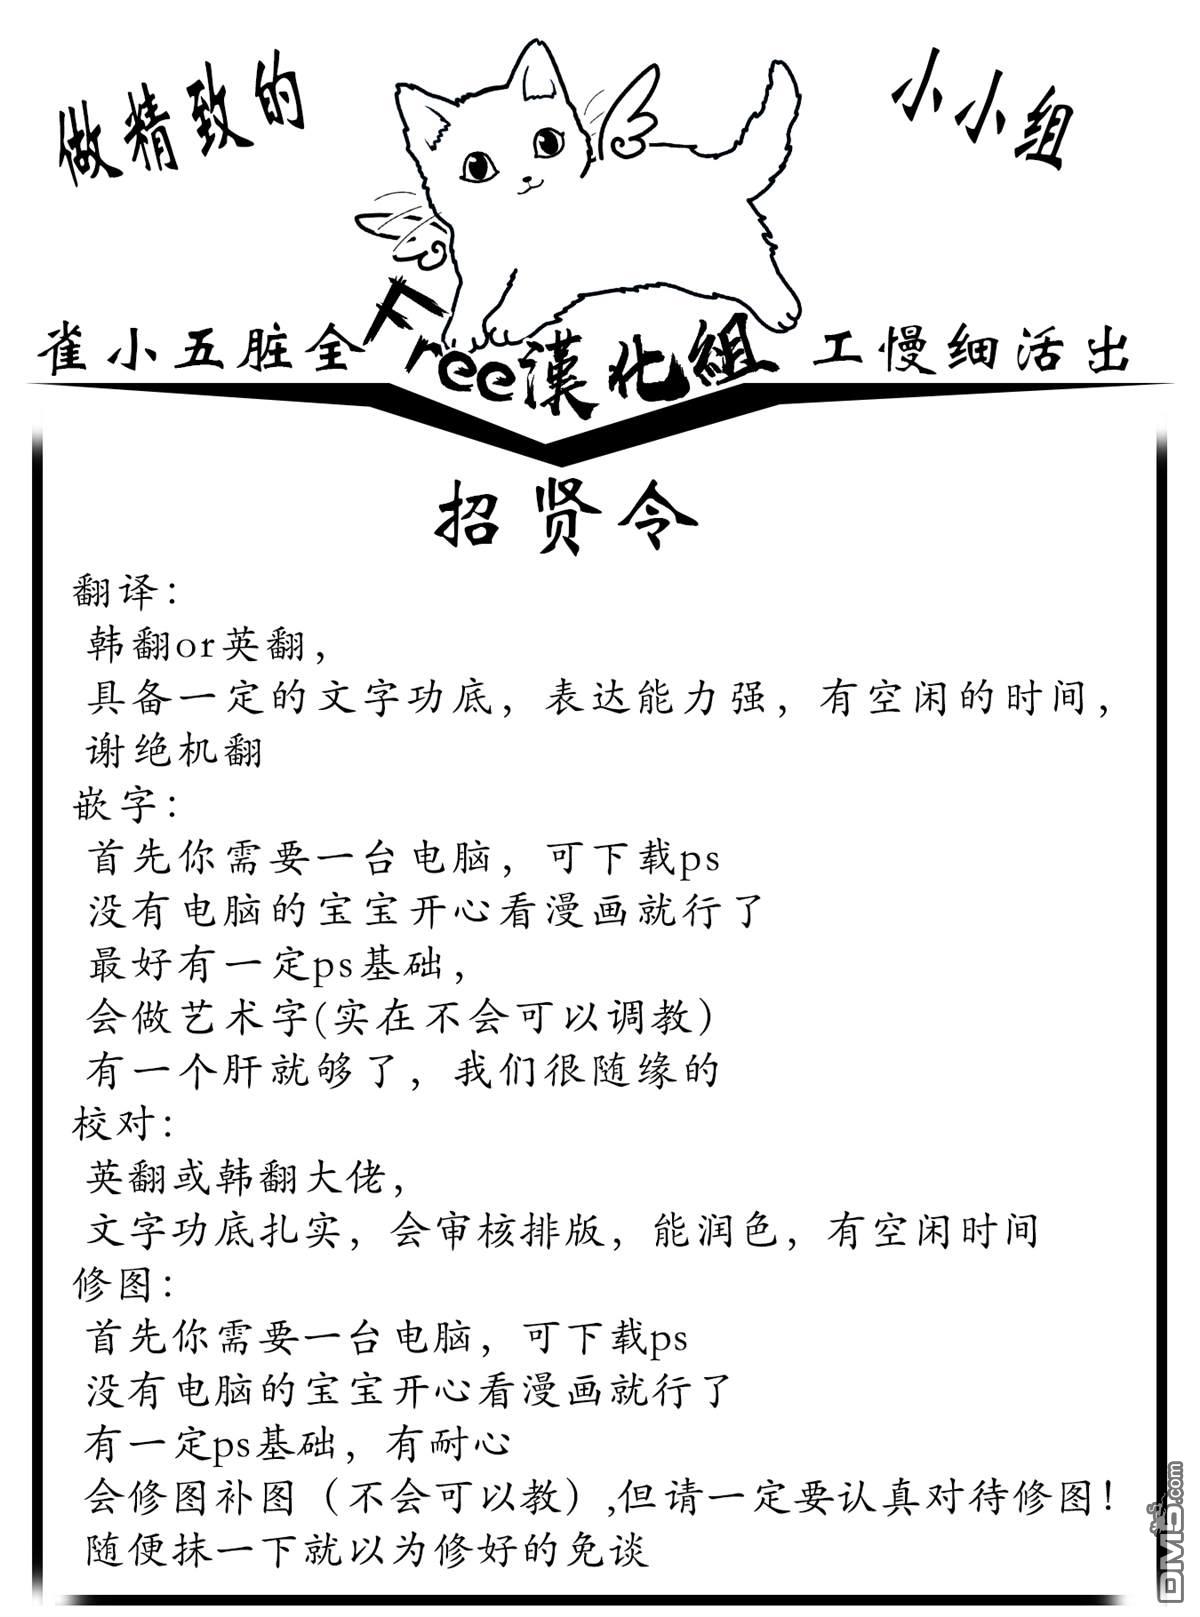 做精致的
小小组
雀小五脏全
Free漢化組
工慢细活出
招贤令
翻译：
韩翻or英翻，
具备一定的文字功底，表达能力强，有空闲的时间，
谢绝机翻
嵌字：
首先你需要一台电脑，可下载ps
没有电脑的宝宝开心看漫画就行了
最好有一定ps基础，
会做艺术字(实在不会可以调教）
有一个肝就够了，我们很随缘的
校对：
英翻或韩翻大佬，
文字功底扎实，会审核排版，能润色，有空闲时间
修图：
首先你需要一台电脑，可下载ps
没有电脑的宝宝开心看漫画就行了
有一定ps基础，有耐心
会修图补图（不会可以教）,但请一定要认真对待修图！
随便抹一下就以为修好的免谈
DM5.com